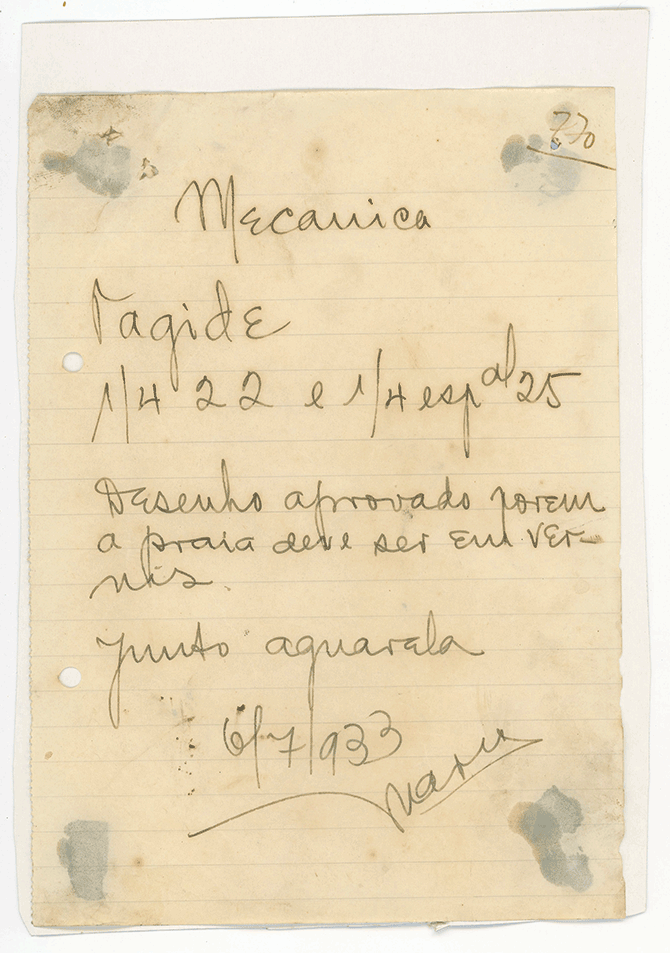 770
Mecanica
Tagide
1/4 22 e 1/4 espal 25
Desenho aprovado porem
a praia deve ser em ver-
nis.
Junto aguarela
6/7/933